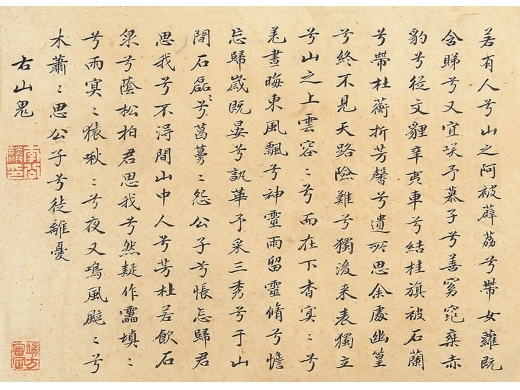 若有人兮山之阿被薜荔兮帶女蘿既
含睇兮又宜咲予慕子兮善窈窕乘赤
豹兮從文貍辛夷車兮結桂旗被石蘭
兮帶杜蘅折芳馨兮遺所思余處幽篁
兮終不見天路險難兮獨後来表獨立
兮山之上雲容〻兮而在下杳冥〻兮
羌晝晦東風飄兮神靈雨留靈脩兮憺
忘歸歲既晏兮孰華予采三秀兮于山
間石磊〻兮葛蔓〻怨公子兮悵忘歸君
思我兮不得間山中人兮芳杜若飲石
泉兮蔭松柏君思我兮然疑作靁填〻
兮雨冥〻猿啾〻兮夜又鳴風颯〻兮
木蕭〻思公子兮徒離憂
右山鬼